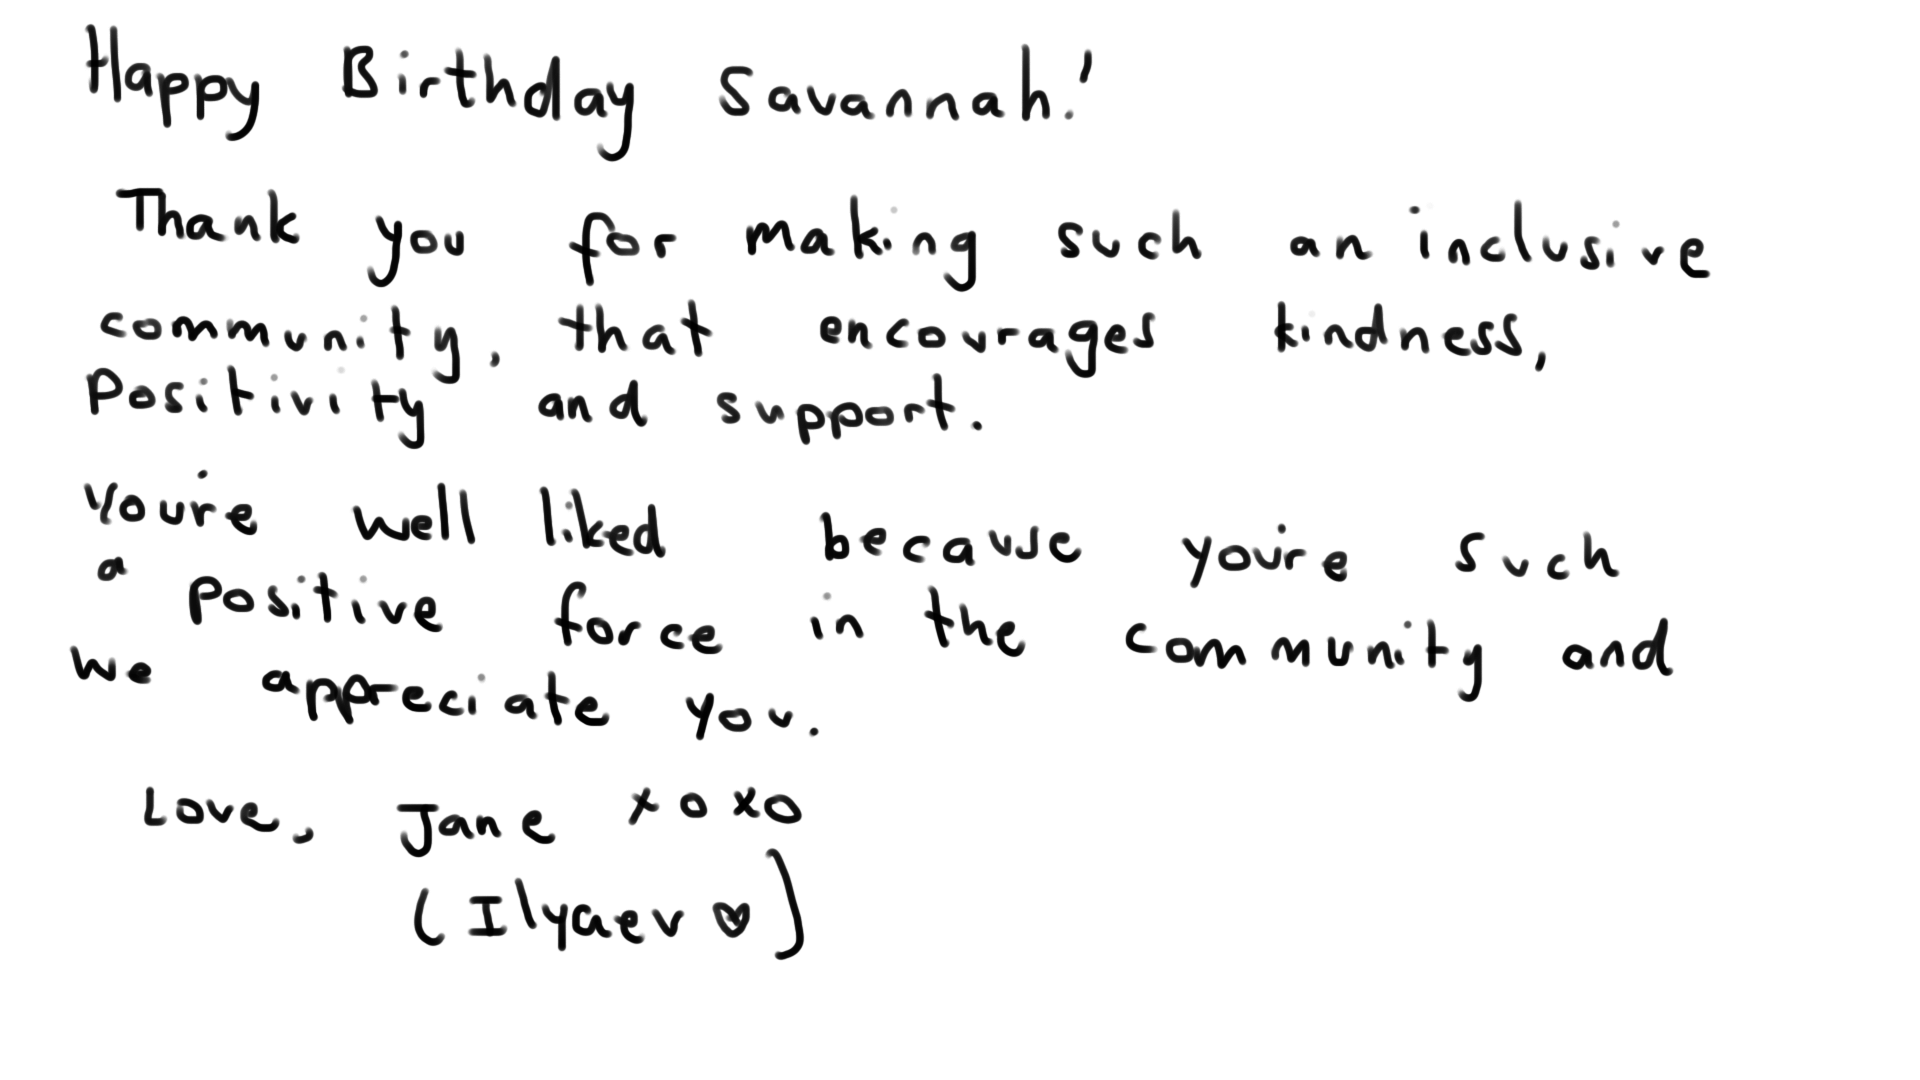 Happy Birthday Savannah!
Thank you for making such an inclusive
community, that encourages kindness,
Positivity and support.
You're well liked because you're such
a positive force in the community and
we appreciate you.
Love, Jane xoxo
(Ilyaev ♡)